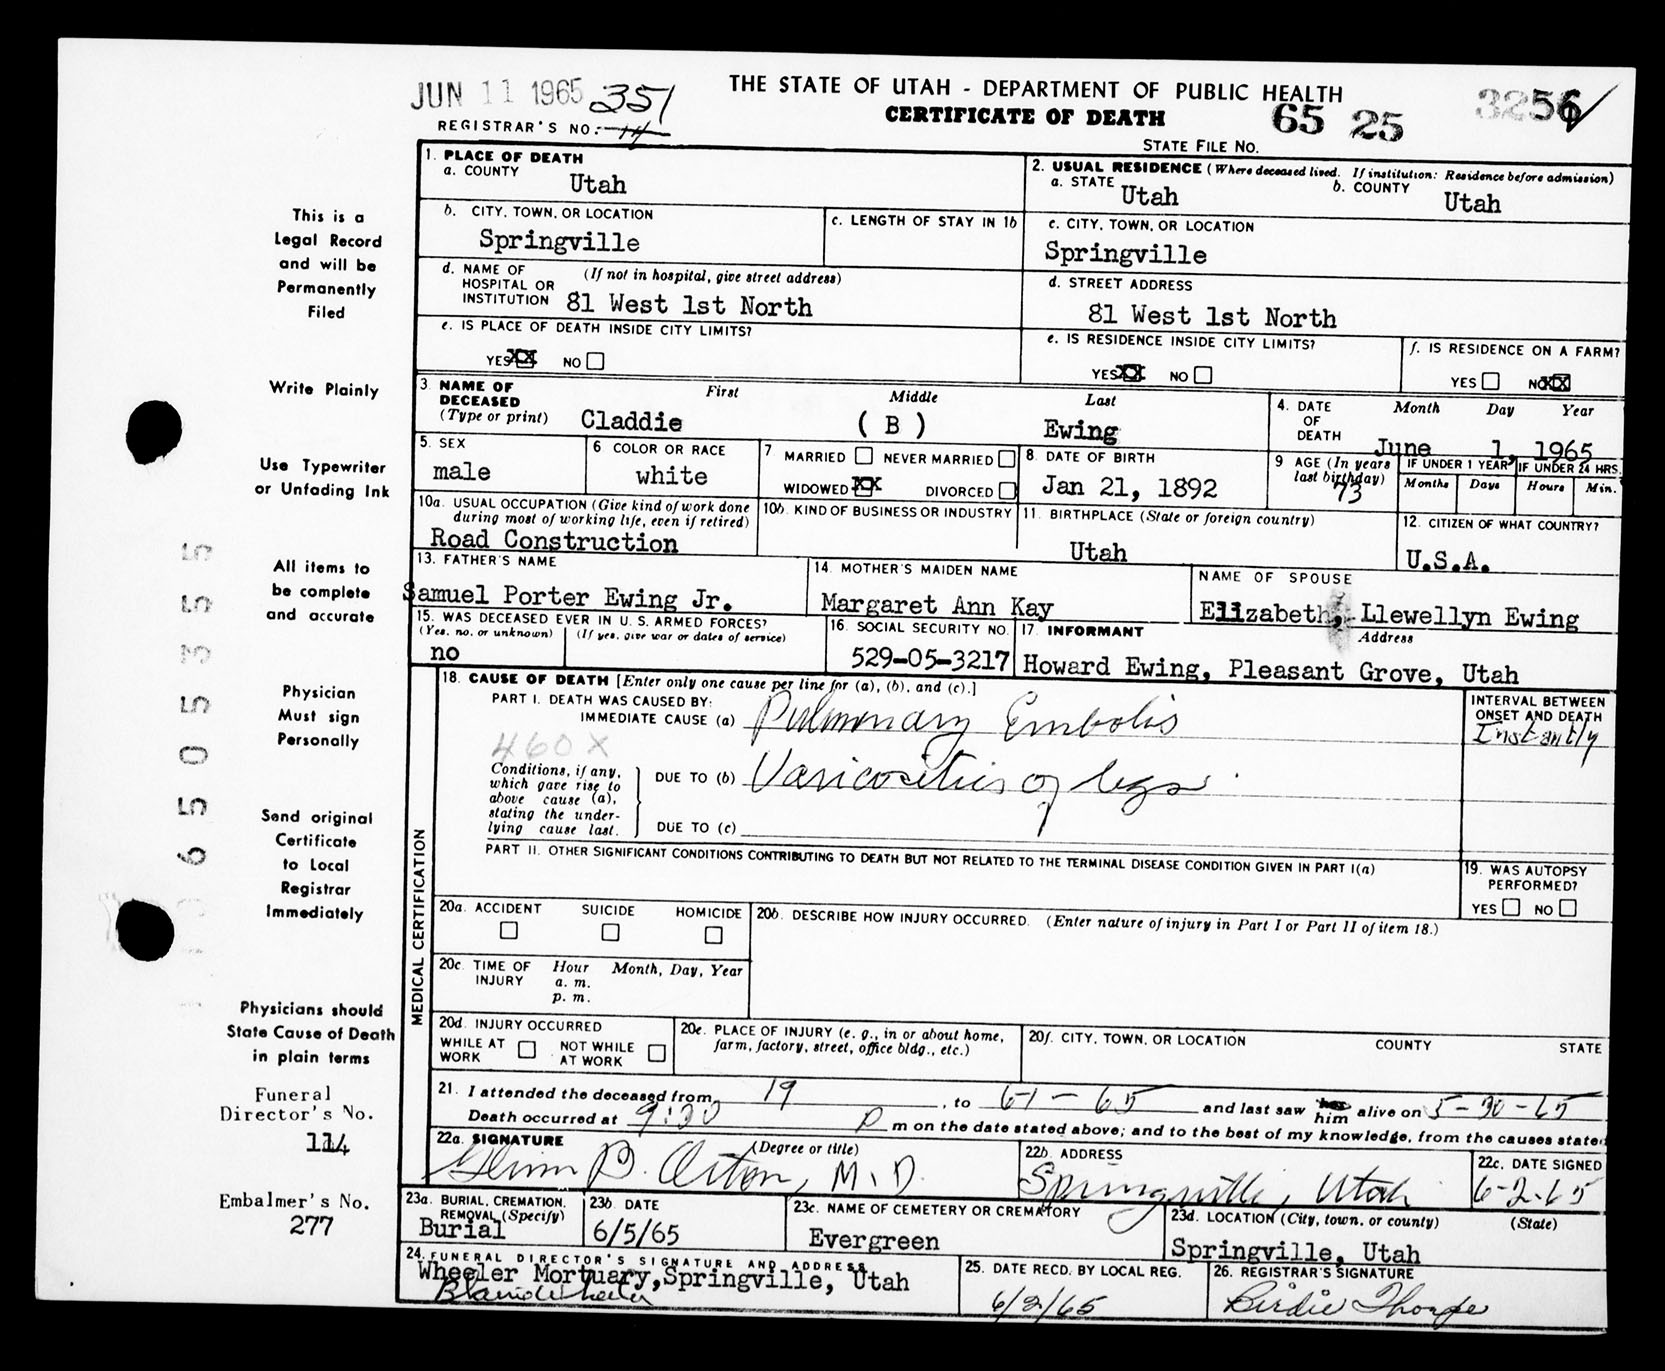 JUN 11 1965 351
THE STATE OF UTAH - DEPARTMENT OF PUBLIC HEALTH
CERTIFICATE OF DEATH
REGISTRAR'S NO:
65 25 3256
STATE FILE NO.
This is a
Legal Record
and will be
Permanently
Filed
Write Plainly
Use Typewriter
or Unfading Ink
All items to
be complete
and accurate
Physician
Must sign
Personally
Send original
Certificate
to Local
Registrar
Immediately
Physicians should
State Cause of Death
in plain terms
Funeral
Director's No.
114
Embalmer's No.
277
6 5 0 5 3 5 5
1. PLACE OF DEATH
a. COUNTY
Utah
2. USUAL RESIDENCE (Where deceased lived. If institution: Residence before admission)
a. STATE Utah b. COUNTY Utah
b. CITY, TOWN, OR LOCATION
Springville
c. LENGTH OF STAY IN 1b
c. CITY, TOWN, OR LOCATION
Springville
d. NAME OF HOSPITAL OR INSTITUTION (If not in hospital, give street address)
81 West 1st North
d. STREET ADDRESS
81 West 1st North
e. IS PLACE OF DEATH INSIDE CITY LIMITS?
YES XX NO
e. IS RESIDENCE INSIDE CITY LIMITS?
YES XX NO
f. IS RESIDENCE ON A FARM?
YES NO XX
3. NAME OF DECEASED (Type or print)
First Middle Last
Claddie ( B ) Ewing
4. DATE OF DEATH
Month Day Year
June 1, 1965
5. SEX
male
6 COLOR OR RACE
white
7 MARRIED NEVER MARRIED
WIDOWED XX DIVORCED
8. DATE OF BIRTH
Jan 21, 1892
9 AGE (In years last birthday)
73
IF UNDER 1 YEAR
Months Days
IF UNDER 24 HRS.
Hours Min.
10a. USUAL OCCUPATION (Give kind of work done during most of working life, even if retired)
Road Construction
10b. KIND OF BUSINESS OR INDUSTRY
11. BIRTHPLACE (State or foreign country)
Utah
12. CITIZEN OF WHAT COUNTRY?
U.S.A.
13. FATHER'S NAME
Samuel Porter Ewing Jr.
14. MOTHER'S MAIDEN NAME
Margaret Ann Kay
NAME OF SPOUSE
Elizabeth, Llewellyn Ewing
15. WAS DECEASED EVER IN U. S. ARMED FORCES?
(Yes, no, or unknown) (If yes, give war or dates of service)
no
16. SOCIAL SECURITY NO.
529-05-3217
17. INFORMANT Address
Howard Ewing, Pleasant Grove, Utah
MEDICAL CERTIFICATION
18. CAUSE OF DEATH [Enter only one cause per line for (a), (b), and (c).]
PART I. DEATH WAS CAUSED BY:
IMMEDIATE CAUSE (a) Pulmonary Embolis
INTERVAL BETWEEN ONSET AND DEATH
Instantly
460X
Conditions, if any, which gave rise to above cause (a), stating the underlying cause last.
DUE TO (b) Varicosities of legs.
DUE TO (c)
PART II. OTHER SIGNIFICANT CONDITIONS CONTRIBUTING TO DEATH BUT NOT RELATED TO THE TERMINAL DISEASE CONDITION GIVEN IN PART I(a)
19. WAS AUTOPSY PERFORMED?
YES NO
20a. ACCIDENT SUICIDE HOMICIDE
20b. DESCRIBE HOW INJURY OCCURRED. (Enter nature of injury in Part I or Part II of item 18.)
20c. TIME OF INJURY Hour Month, Day, Year
a. m.
p. m.
20d. INJURY OCCURRED
WHILE AT WORK NOT WHILE AT WORK
20e. PLACE OF INJURY (e. g., in or about home, farm, factory, street, office bldg., etc.)
20f. CITY, TOWN, OR LOCATION COUNTY STATE
21. I attended the deceased from 19, to 6-1-65 and last saw him alive on 5-30-65
Death occurred at 9:30 p m on the date stated above; and to the best of my knowledge, from the causes stated
22a. SIGNATURE (Degree or title)
Glenn B. Orton, M.D.
22b. ADDRESS
Springville, Utah
22c. DATE SIGNED
6-2-65
23a. BURIAL, CREMATION, REMOVAL (Specify)
Burial
23b. DATE
6/5/65
23c. NAME OF CEMETERY OR CREMATORY
Evergreen
23d. LOCATION (City, town, or county) (State)
Springville, Utah
24. FUNERAL DIRECTOR'S SIGNATURE AND ADDRESS
Wheeler Mortuary, Springville, Utah
25. DATE RECD. BY LOCAL REG.
6/2/65
26. REGISTRAR'S SIGNATURE
Birdie Thorpe